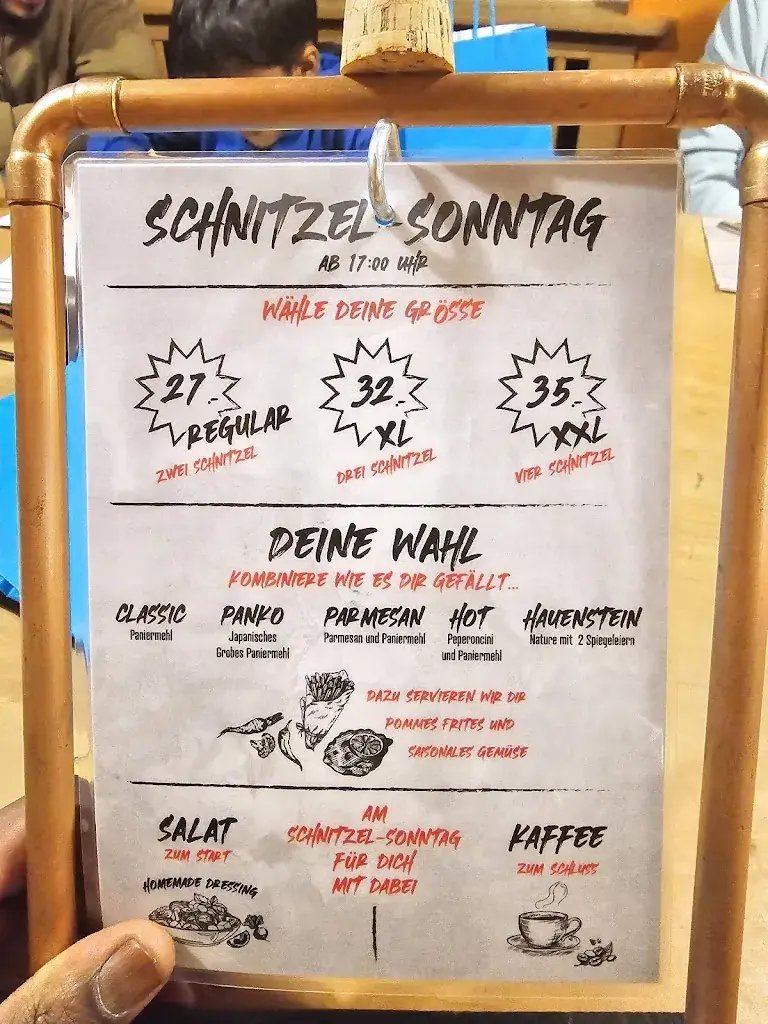 SCHNITZEL-SONNTAG
AB 17:00 UHR
WÄHLE DEINE GRÖSSE
27.-
REGULAR
ZWEI SCHNITZEL
32.-
XL
DREI SCHNITZEL
35.-
XXL
VIER SCHNITZEL
DEINE WAHL
KOMBINIERE WIE ES DIR GEFÄLLT...
CLASSIC
Paniermehl
PANKO
Japanisches
Grobes Paniermehl
PARMESAN
Parmesan und Paniermehl
HOT
Peperoncini
und Paniermehl
HAUENSTEIN
Nature mit 2 Spiegeleiern
DAZU SERVIEREN WIR DIR
POMMES FRITES UND
SAISONALES GEMÜSE
SALAT
ZUM START
HOMEMADE DRESSING
AM
SCHNITZEL-SONNTAG
FÜR DICH
MIT DABEI
KAFFEE
ZUM SCHLUSS